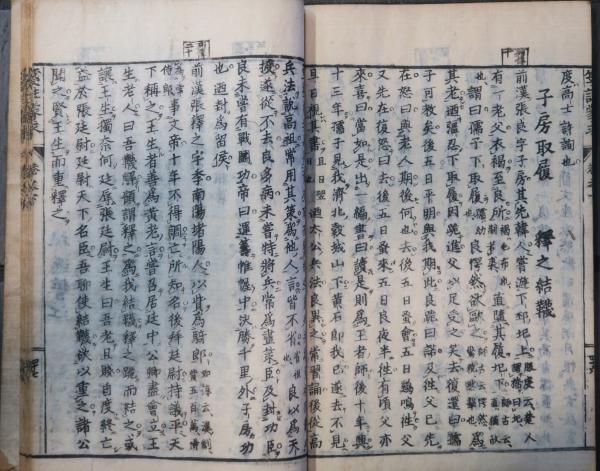 度高士詩詢也
子房取履 釋之結韈
前漢張良字子房其先韓人嘗遊下邳圯上服虔云楚人謂橋曰圯
有一老父衣褐至良所直墮其履圯下
謂曰孺子下取履良愕然欲歐之為
其老廼彊忍下取履因跪進父以足受之笑去復還曰孺
子可教矣後五日平明與我期此良跪曰諾及往父已先
在怒曰與老人期後何也去後五日蚤會五日鷄鳴往父
又先在復怒曰去後五日蚤來五日良夜半往有頃父亦
來喜曰當如是出一編書曰讀是則為王者師後十年興
十三年孺子見我濟北穀城山下黄石即我已遂去不見
旦日視其書廼太公兵法良異之常習誦後從高
兵法說高祖常用其策為他人言皆不省良以為天
授遂從不去良多病未嘗特將兵常為畫策臣及封功臣
良未嘗有戰鬪功帝曰運籌帷幄中決勝千里外子房功
也迺封為留侯
前漢張釋之字季南陽堵陽人以貲為騎郎如淳云漢制貲五百萬得為常侍郎
事文帝十年不得調亡所知名後拜廷尉持議平天
下稱之王生者善為黄老言嘗召居廷中公卿盡會立王
生老人曰吾韈解顧謂釋之為我結韈釋之跪而結之或
讓王生獨奈何廷辱張廷尉王生曰吾老且賤自度終亡
益於張廷尉廷尉天下名臣吾聊使結韈欲以重之諸公
聞之賢王生而重釋之